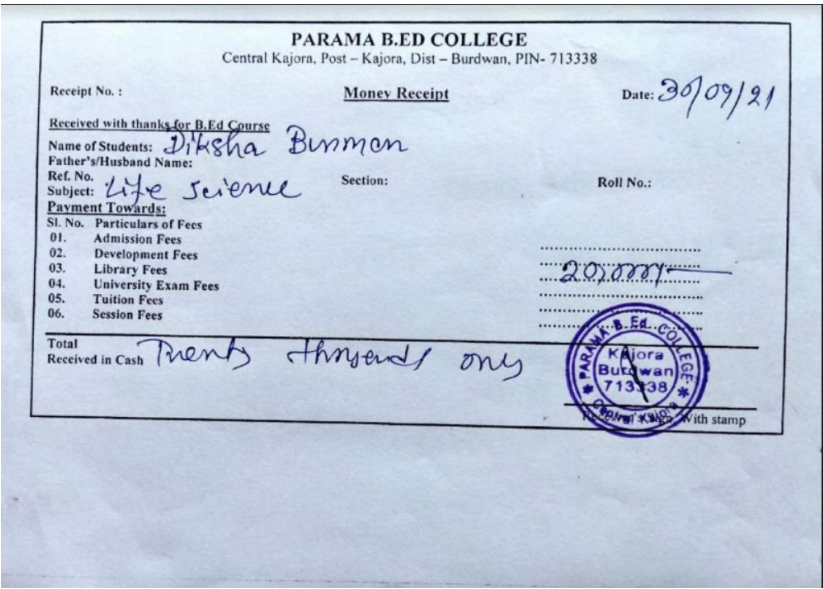 PARAMA B.ED COLLEGE
Central Kajora, Post – Kajora, Dist – Burdwan, PIN- 713338
Receipt No. : Money Receipt Date: 30/09/21
Received with thanks for B.Ed Course
Name of Students: Diksha Burman
Father's/Husband Name:
Ref. No. Section: Roll No.:
Subject: Life science
Payment Towards:
Sl. No. Particulars of Fees
01. Admission Fees
02. Development Fees
03. Library Fees 20,000/-
04. University Exam Fees
05. Tuition Fees
06. Session Fees
Total
Received in Cash Twenty thousands only
PARAMA B.Ed. COLLEGE
Kajora
Burdwan
713338
Central Kajora
Sign. With stamp